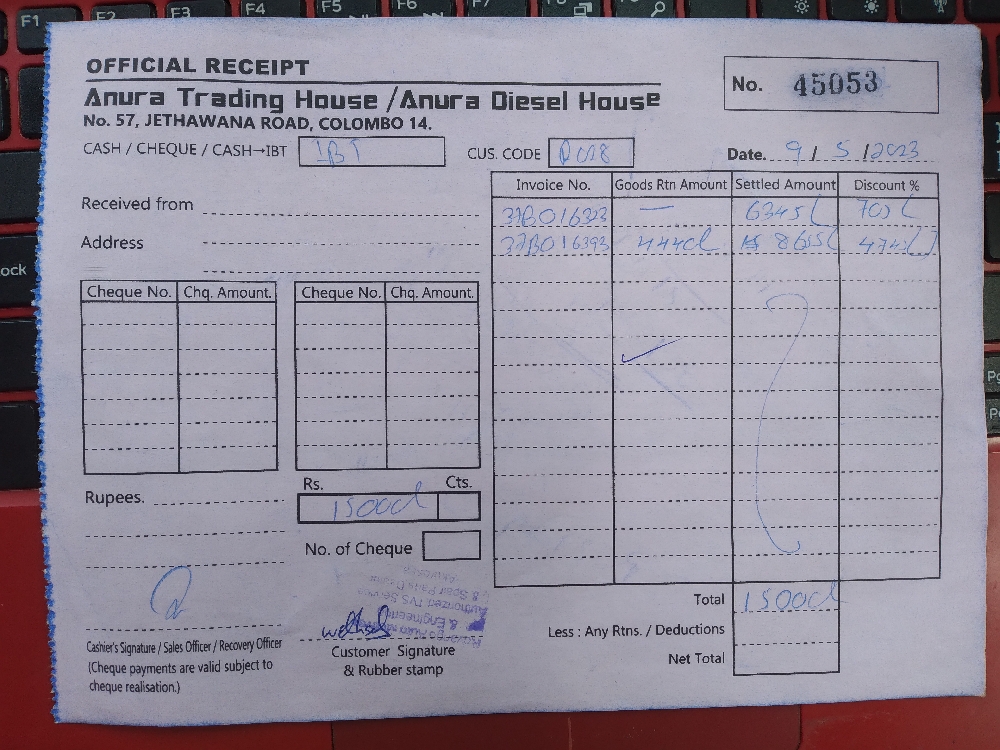 OFFICIAL RECEIPT
Anura Trading House /Anura Diesel House
No. 57, JETHAWANA ROAD, COLOMBO 14.
No. 45053
CASH / CHEQUE / CASH→IBT IBT
CUS. CODE
Date. 9/5/2023
Received from
Address
Invoice No. Goods Rtn Amount Settled Amount Discount %
37B016323 — 6345/
37B016393 4440/ 8655/
Cheque No. Chq. Amount. Cheque No. Chq. Amount.
Rupees.
Rs. Cts.
15000/
No. of Cheque
Total 15000/
Less : Any Rtns. / Deductions
Net Total
Cashier's Signature / Sales Officer / Recovery Officer
(Cheque payments are valid subject to
cheque realisation.)
Customer Signature
& Rubber stamp
& Engineers
Authorized TVS Service
& Spair Parts Dealer
F1 F2 F3 F4 F5 F6 F7
ock